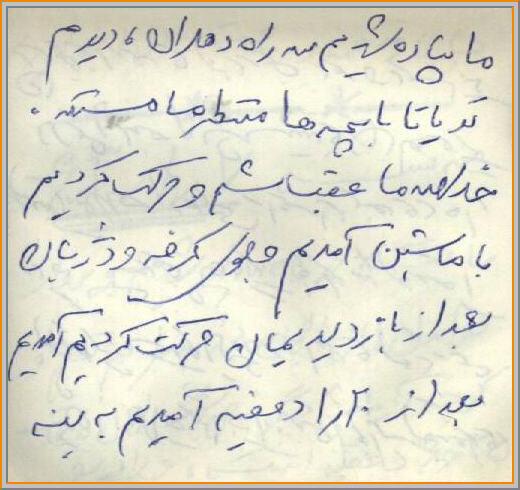 ما پیاده شدیم سه راه دهلران، دیدم
که با بچه‌ها منتظر ما هستند.
خلاصه ما عقب و حرکت کردیم
با ماشین آمدیم جلوی گرفته و دژبان
بعد از بازدیدیمان حرکت کردیم آمدیم
بعد از ۲۰ دقیقه آمدیم به